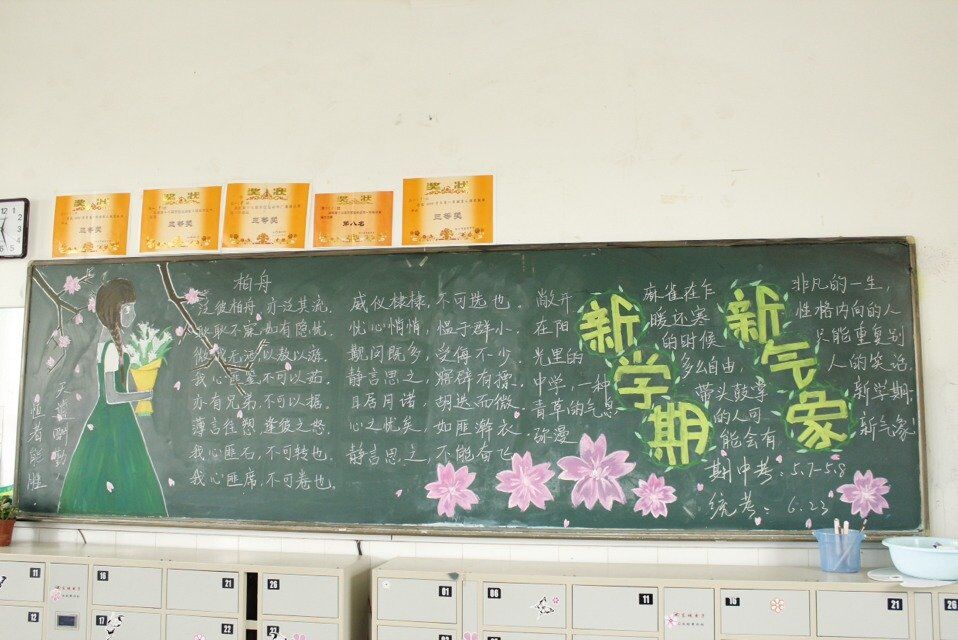 奖状
三等奖
奖状
三等奖
奖状
三等奖
奖状
第八名
奖状
三等奖
12
1
2
3
4
5
天道酬勤,
恒者能胜
柏舟
泛彼柏舟,亦泛其流。
耿耿不寐,如有隐忧。
微我无酒,以敖以游。
我心匪鉴,不可以茹。
亦有兄弟,不可以据。
薄言往愬,逢彼之怒。
我心匪石,不可转也。
我心匪席,不可卷也。
威仪棣棣,不可选也。
忧心悄悄,愠于群小。
觏闵既多,受侮不少。
静言思之,寤辟有摽。
日居月诸,胡迭而微。
心之忧矣,如匪澣衣。
静言思之,不能奋飞。
敞开
在阳
光里的
中学,一种
青草的气息
弥漫
新学期
麻雀在乍
暖还寒
的时候
多么自由,
带头鼓掌
的人可
能会有
新气象
非凡的一生,
性格内向的人
只能重复别
人的笑话,
新学期,
新气象!
期中考:5.7-5.8
统考:6.23
11
16
21
26
01
06
11
16
21
26
12
17
22
27